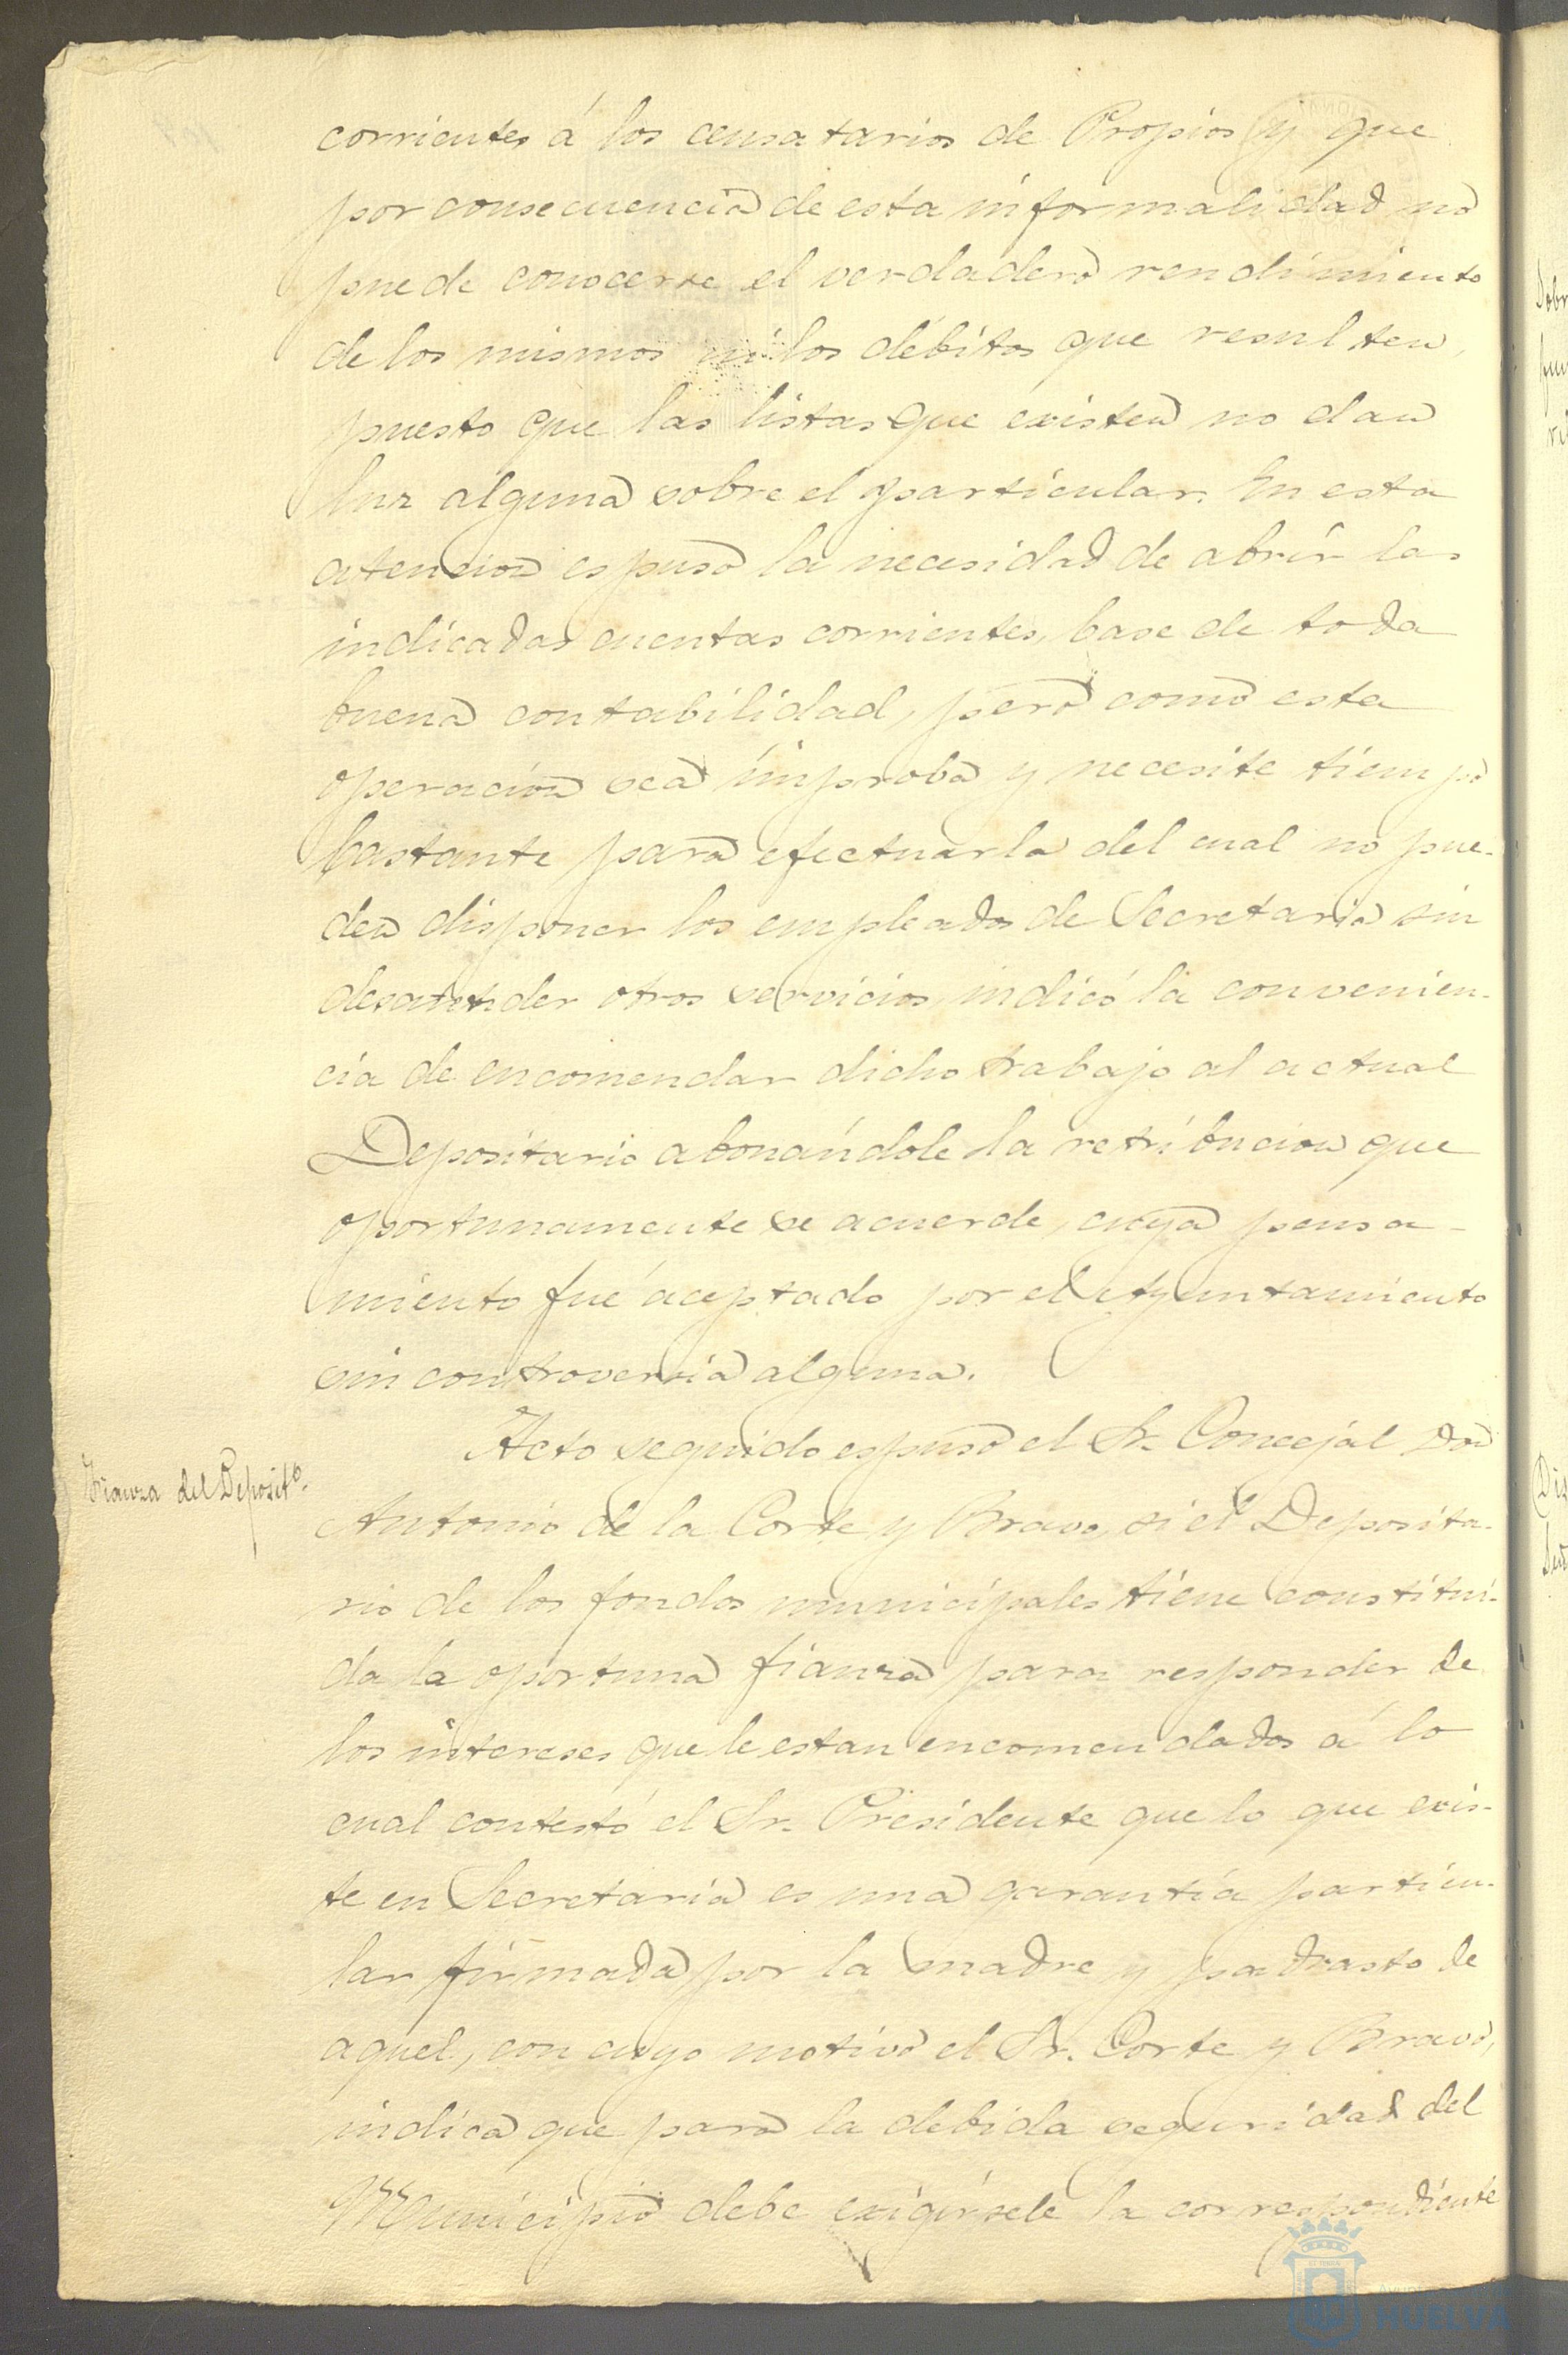 corrientes á los censatarios de Propios y que
por consecuencia de esta informalidad no
puede conocerse el verdadero rendimiento
de los mismos ni los débitos que resulten,
puesto que las listas que existen no dan
luz alguna sobre el particular. En esta
atencion espuso la necesidad de abrir las
indicadas cuentas corrientes, base de toda
buena contabilidad, pero como esta
operacion sea improba y necesite tiempo
bastante para efectuarla del cual no pue-
den disponer los empleados de Secretaria sin
desatender otros servicios, indicó la convenien-
cia de encomendar dicho trabajo al actual
Depositario abonándole la retribucion que
oportunamente se acuerde, cuya pensa-
miento fué aceptado por el Ayuntamiento
sin controversia alguna.
Fianza del Deposit.º
Acto seguido espuso el Sr. Concejal Don
Antonio de la Corte y Bravo, si el Deposita-
rio de los fondos municipales tiene constitui-
da la oportuna fianza para responder de
los intereses que le estan encomendados á lo
cual contestó el Sr. Presidente que lo que exis-
te en Secretaria es una garantía particu-
lar firmada por la madre y padrasto de
aquel, con cuyo motivo el Sr. Corte y Bravo,
indica que para la debida seguridad del
Municipio debe exigírsele la correspondiente
HUELVA